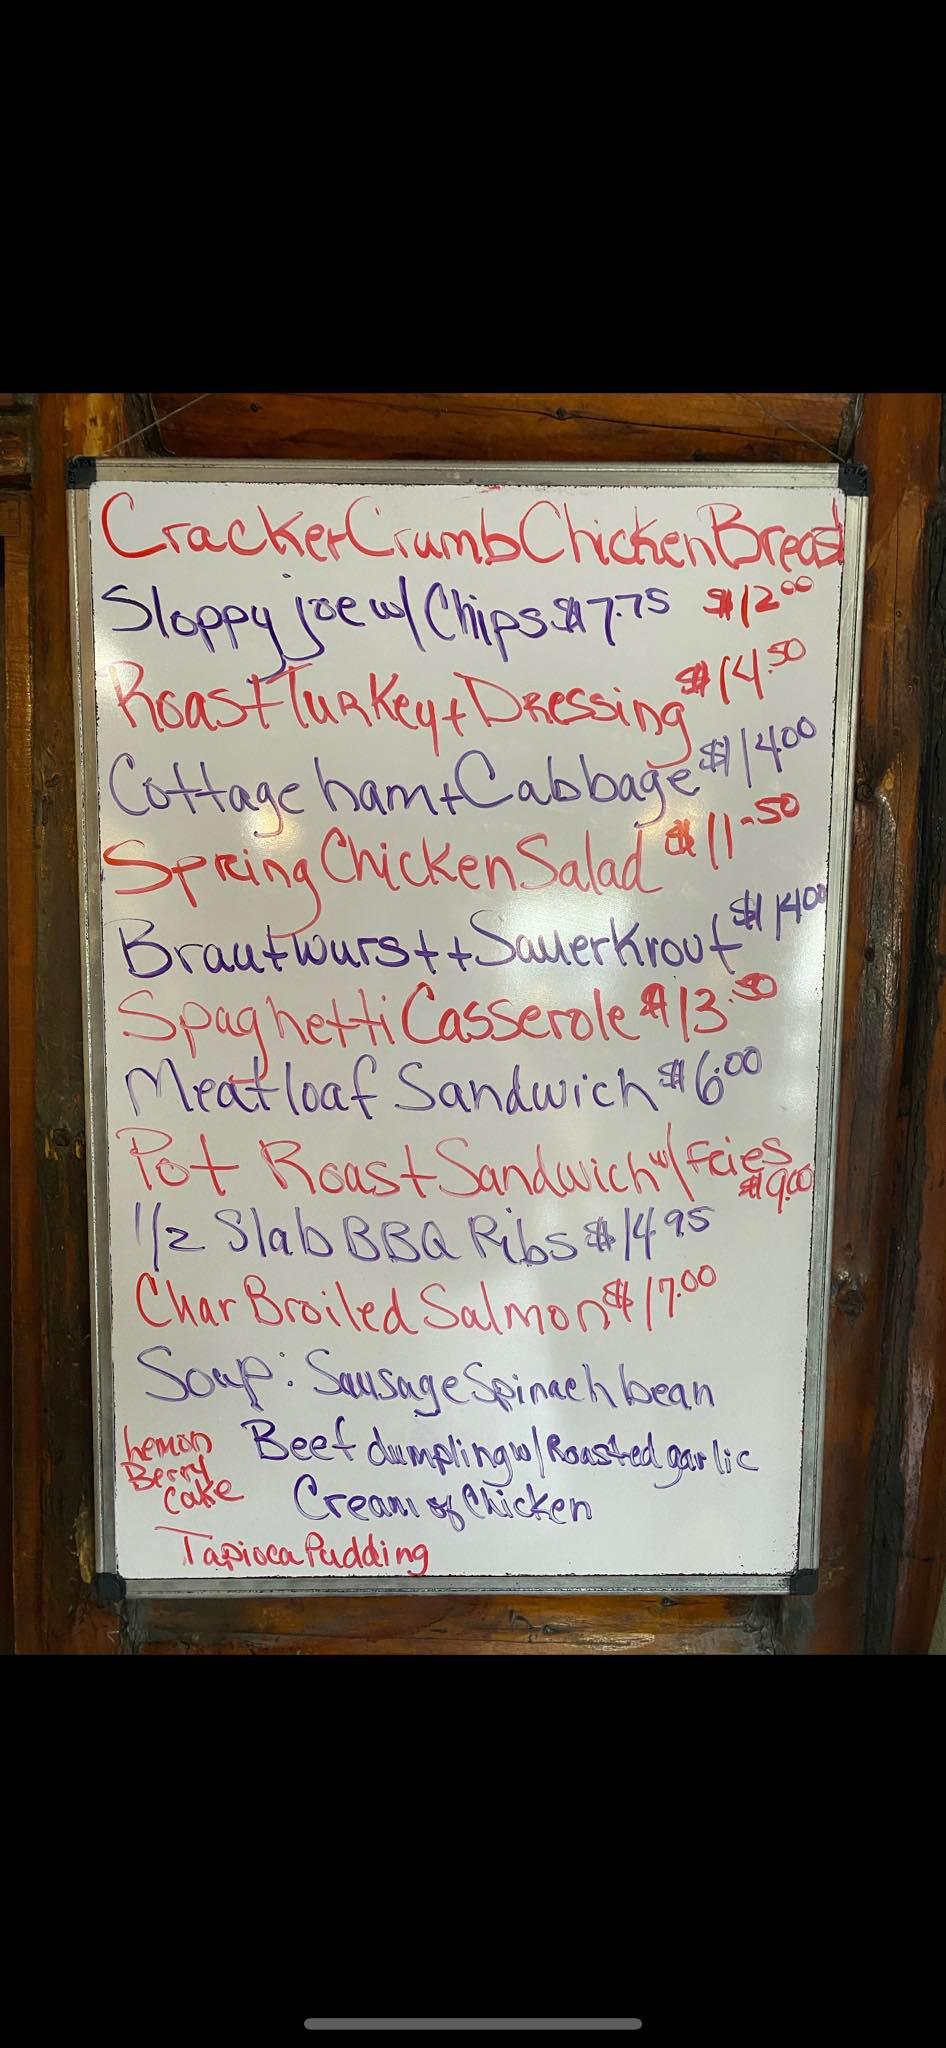 Cracker Crumb Chicken Breast
Sloppy joe w/ Chips $7.75 $12.00
Roast Turkey + Dressing $14.50
Cottage ham + Cabbage $14.00
Spring Chicken Salad $11.50
Brautwurst + SauerKrout $14.00
Spaghetti Casserole $13.50
Meatloaf Sandwich $6.00
Pot Roast Sandwich w/ fries
$9.00
1/2 Slab BBQ Ribs $14.95
Char Broiled Salmon $17.00
Soup: Sausage Spinach bean
Beef dumpling w/ Roasted garlic
Cream of Chicken
Lemon
Berry
Cake
Tapioca Pudding